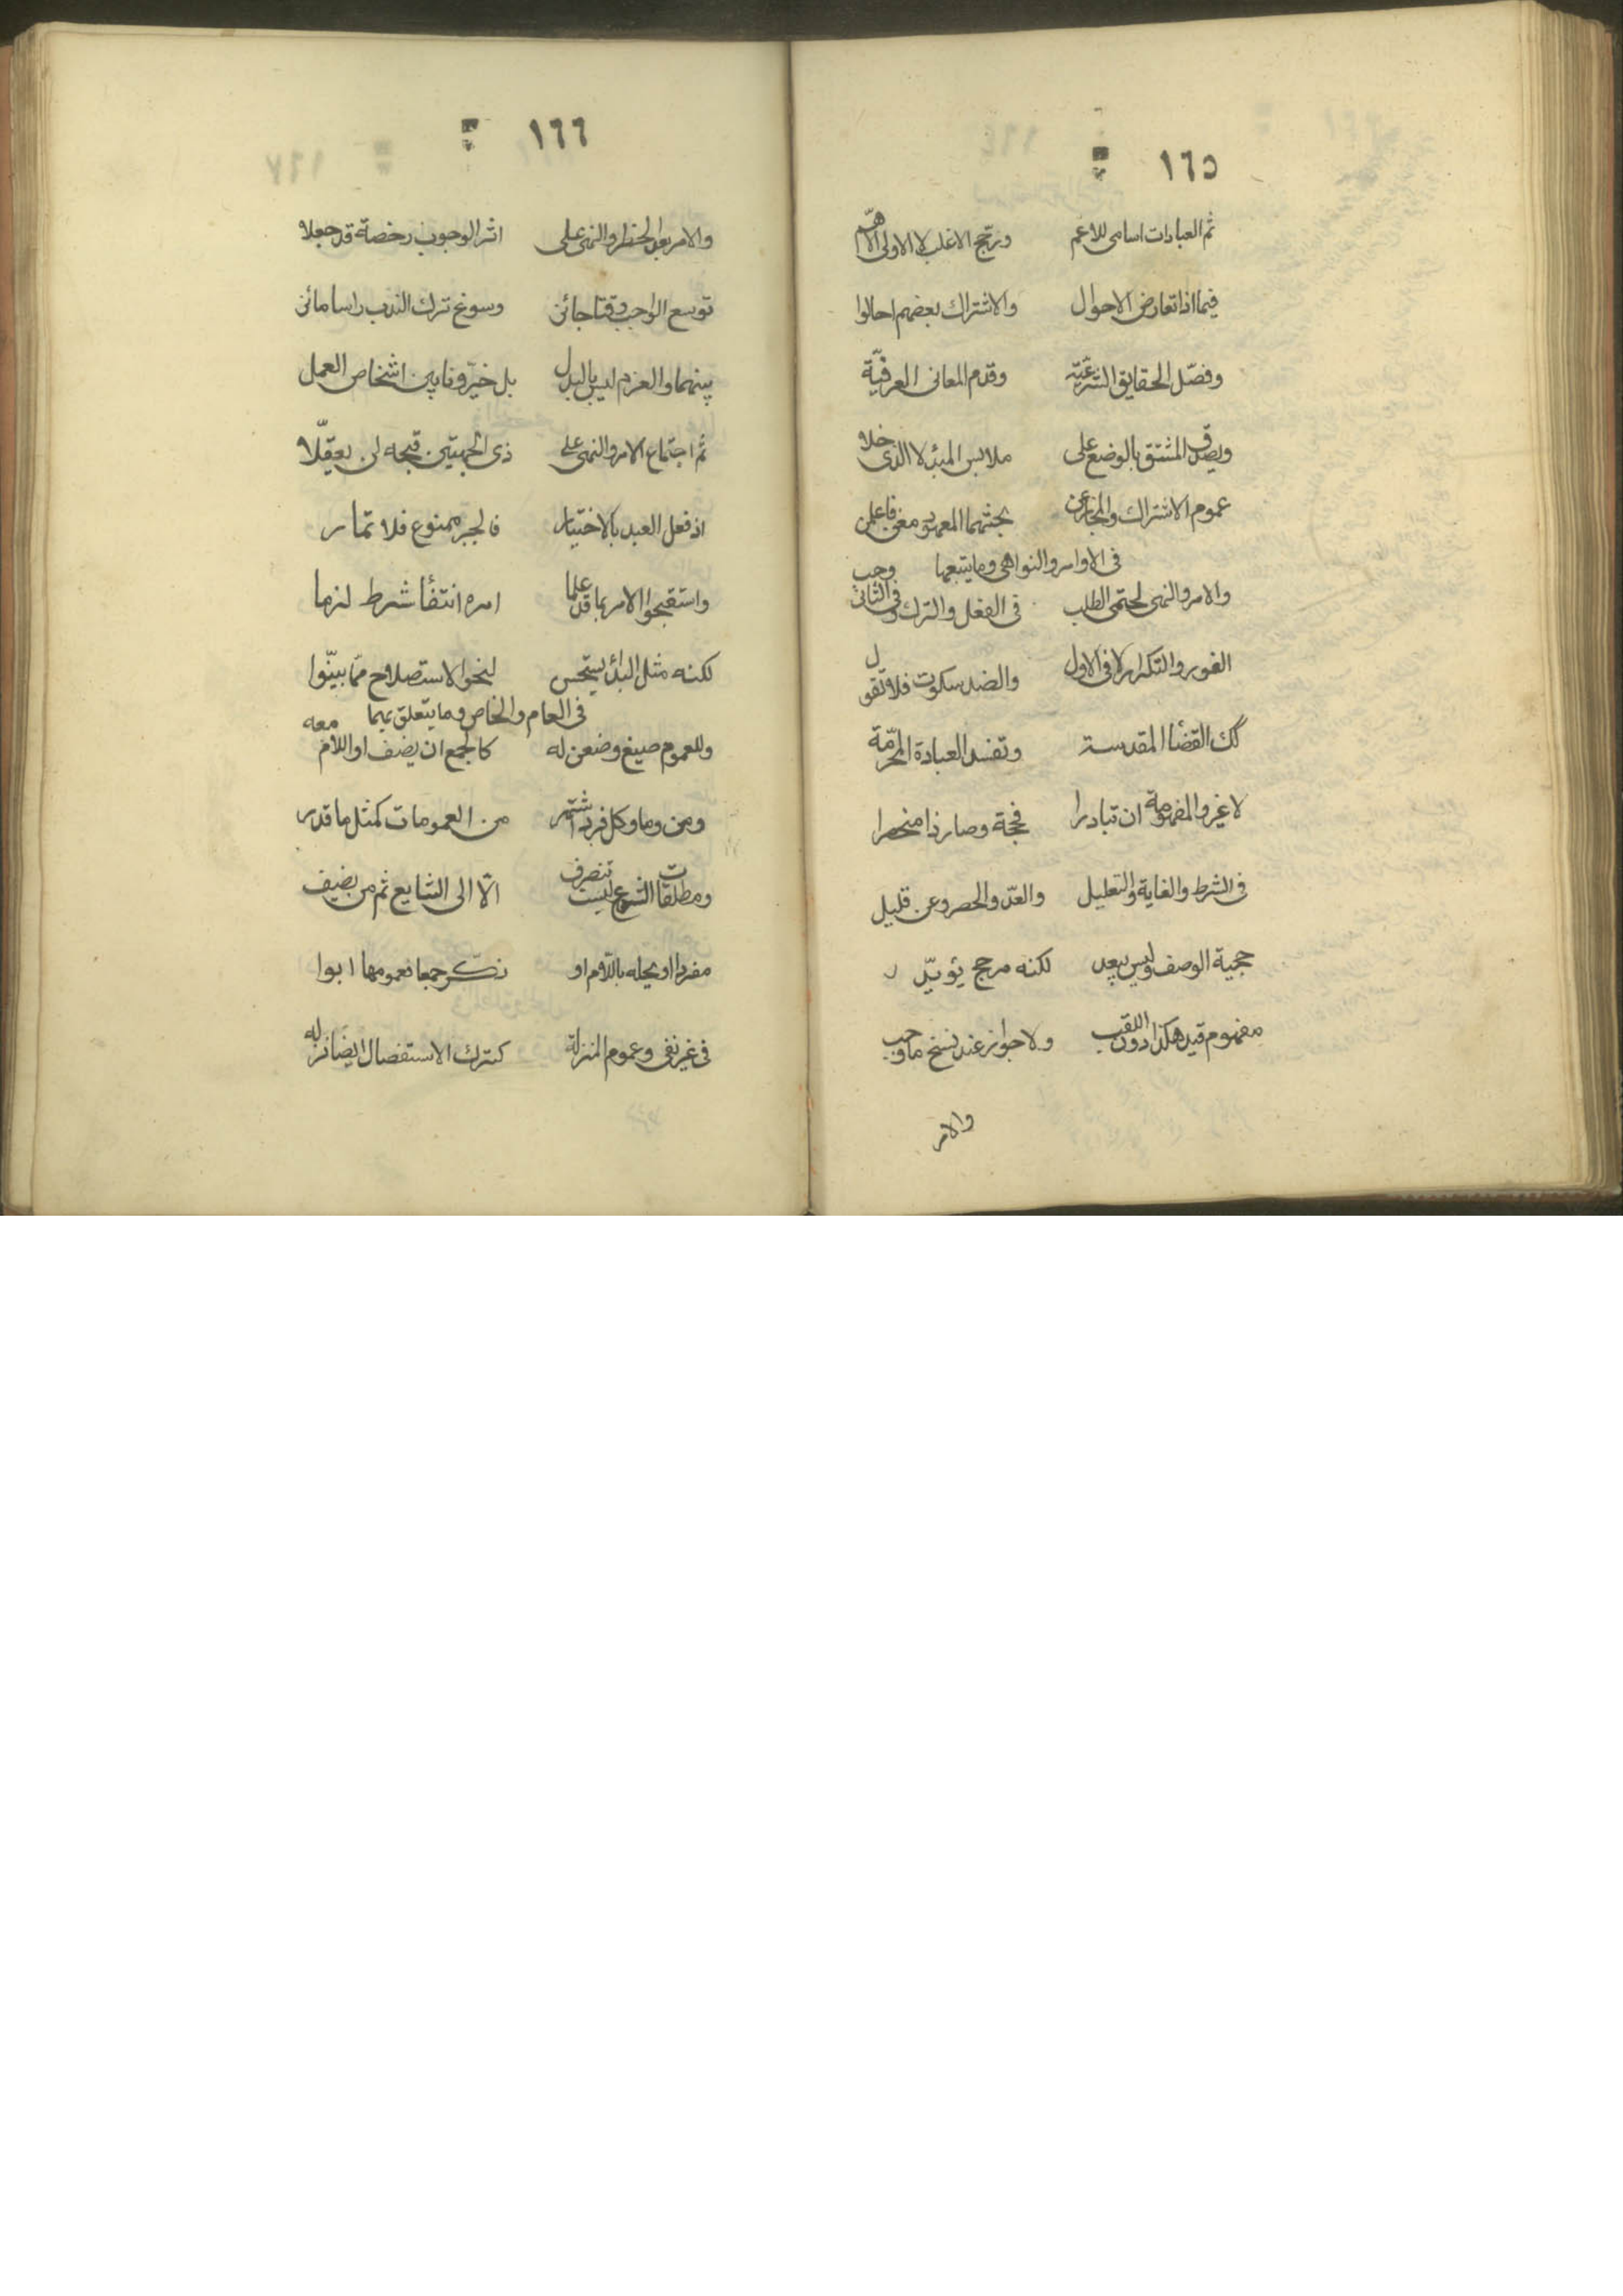 ١٦٥
ثم العبادات اسامی للاعم ورجح الاغلب لا الاولی الاهم
فیما اذا تعارض الاحوال والاشتراك بعضهم احالوا
وفصّل الحقایق الشرعیّة وقدم المعانی العرفیّة
ویصدق المشتق بالوضع علی ملابس المبدء لا الذی خلا
عموم الاشتراك والمجاز عن بحثهما المعهود مغن فاعلمن
فی الاوامر والنواهی وما یتبعها
والامر والنهی لحتمی الطلب فی الفعل والترك وفی الثانی وجب
الفور والتكرار لا فی الاول والضد سكوت فلا تقول
كك القضا المقدمة وتفسد العبادة المحرّمة
لا غیر والمفهوم ان تبادرا فحجة وصار ذا منحصرا
فی الشرط والغایة والتعلیل والعدّ والحصر وعن قلیل
حجیة الوصف ولیس یبعد لكنه مرجح یؤیّد
مفهوم قید هكذا دون اللقب ولا جواز عند نسخ ما وجب
والامر
١٦٦
والامر بعد الحظر والنهی علی اثر الوجوب رخصة قد جعلا
توسع الواجب وقتا جائز وسوغ ترك الندب راسا مائز
بینهما والعزم لیس بالبدل بل خیّرونا بین اشخاص العمل
ثم اجتماع الامر والنهی علی ذی الجهتین قبحه لن یعقلا
اذ فعل العبد بالاختیار فالجبر ممنوع فلا تمار
واستقبحوا الامر بما قد علما امره انتفأ شرط لزما
لكنه مثل البدأ یستحسن لنحو الاستصلاح مما بیّنوا
فی العام والخاص وما یتعلق بهما
وللعموم صیغ وضعن له كالجمع ان یضف او اللام معه
ومن وما وكل فرد اشتهر من العمومات كمثل ما قدر
ومطلقات الشرع لیست تنصرف الّا الی الشایع ثم من یضیف
مفردا او یحله باللّام او نكّر جمعا فعمومها ابوا
فی غیر نفی وعموم المنزلة كترك الاستفصال ایضا نزله